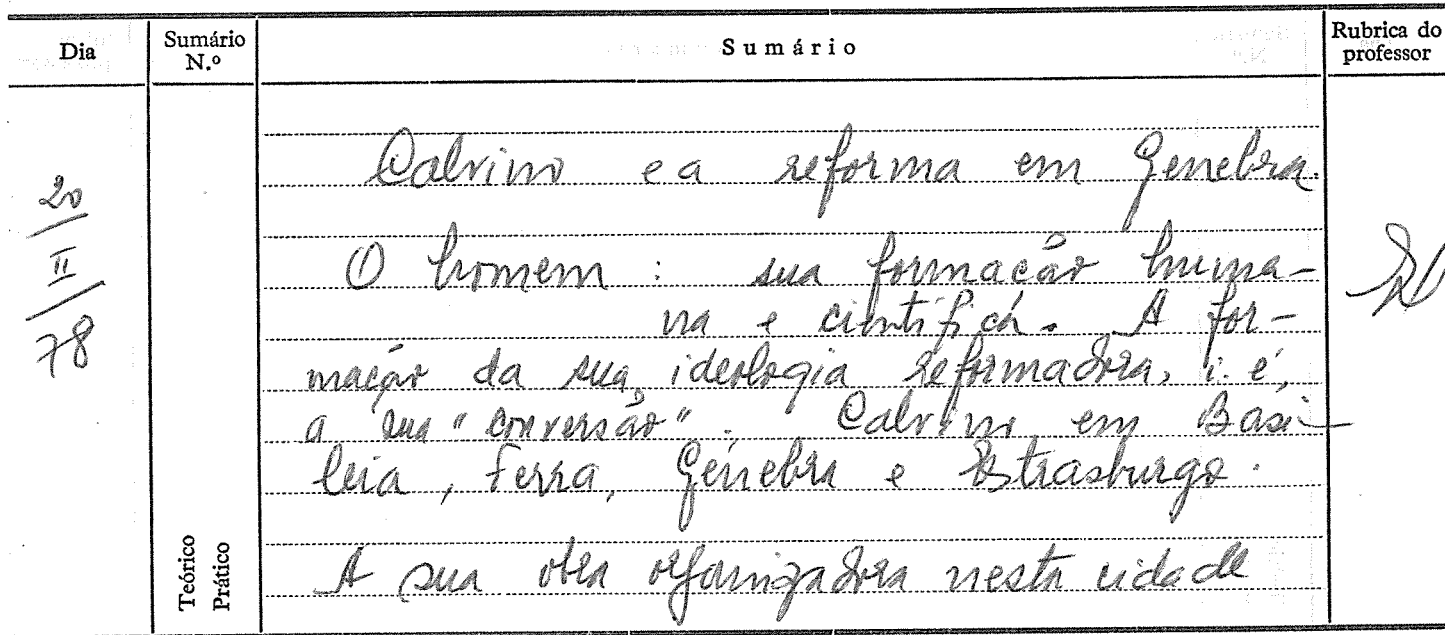 Dia
Sumário N.º
Sumário
Rubrica do professor
20
II
78
Calvino e a reforma em Genebra.
O homem : sua formação huma-
na e científica. A for-
mação da sua ideologia reformadora, i. é,
a sua "conversão". Calvino em Basi-
leia, Ferra, Genebra e Estrasburgo.
A sua obra organizadora nesta cidade
Teórico
Prático